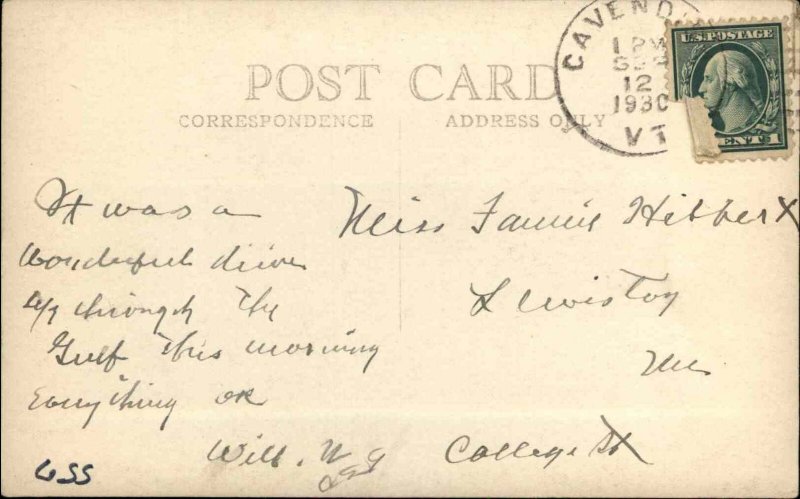 CAVEND
1 PM
SEP
12
1930
VT
U.S. POSTAGE
CENT 1
POST CARD
CORRESPONDENCE
ADDRESS ONLY
It was a
wonderful drive
up through the
Gulf this morning
Everything OK
Will.
Miss Fannie Hibbert
Lewiston
Me
College St
655